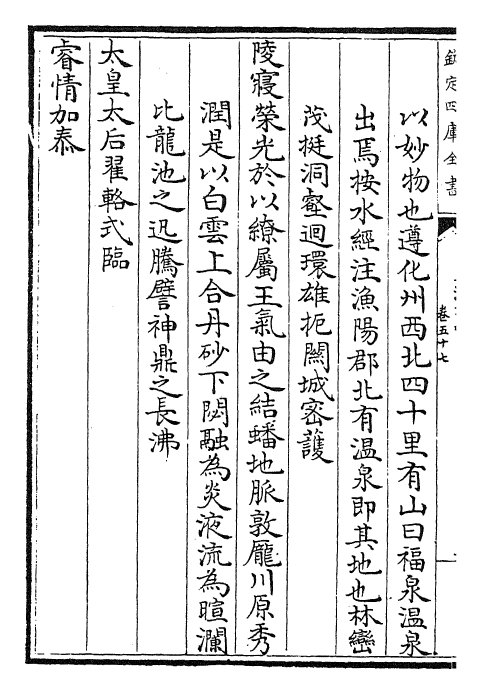 欽定四庫全書
卷五十七
以妙物也遵化州西北四十里有山曰福泉温泉
出焉按水經注漁陽郡北有温泉即其地也林巒
茂挺洞壑迴環雄扼闗城密護
陵寢榮光於以繚屬王氣由之結蟠地脈敦龎川原秀
潤是以白雲上合丹砂下閟融為炎液流為暄瀾
比龍池之迅騰譬神鼎之長沸
太皇太后翟輅式臨
睿情加泰